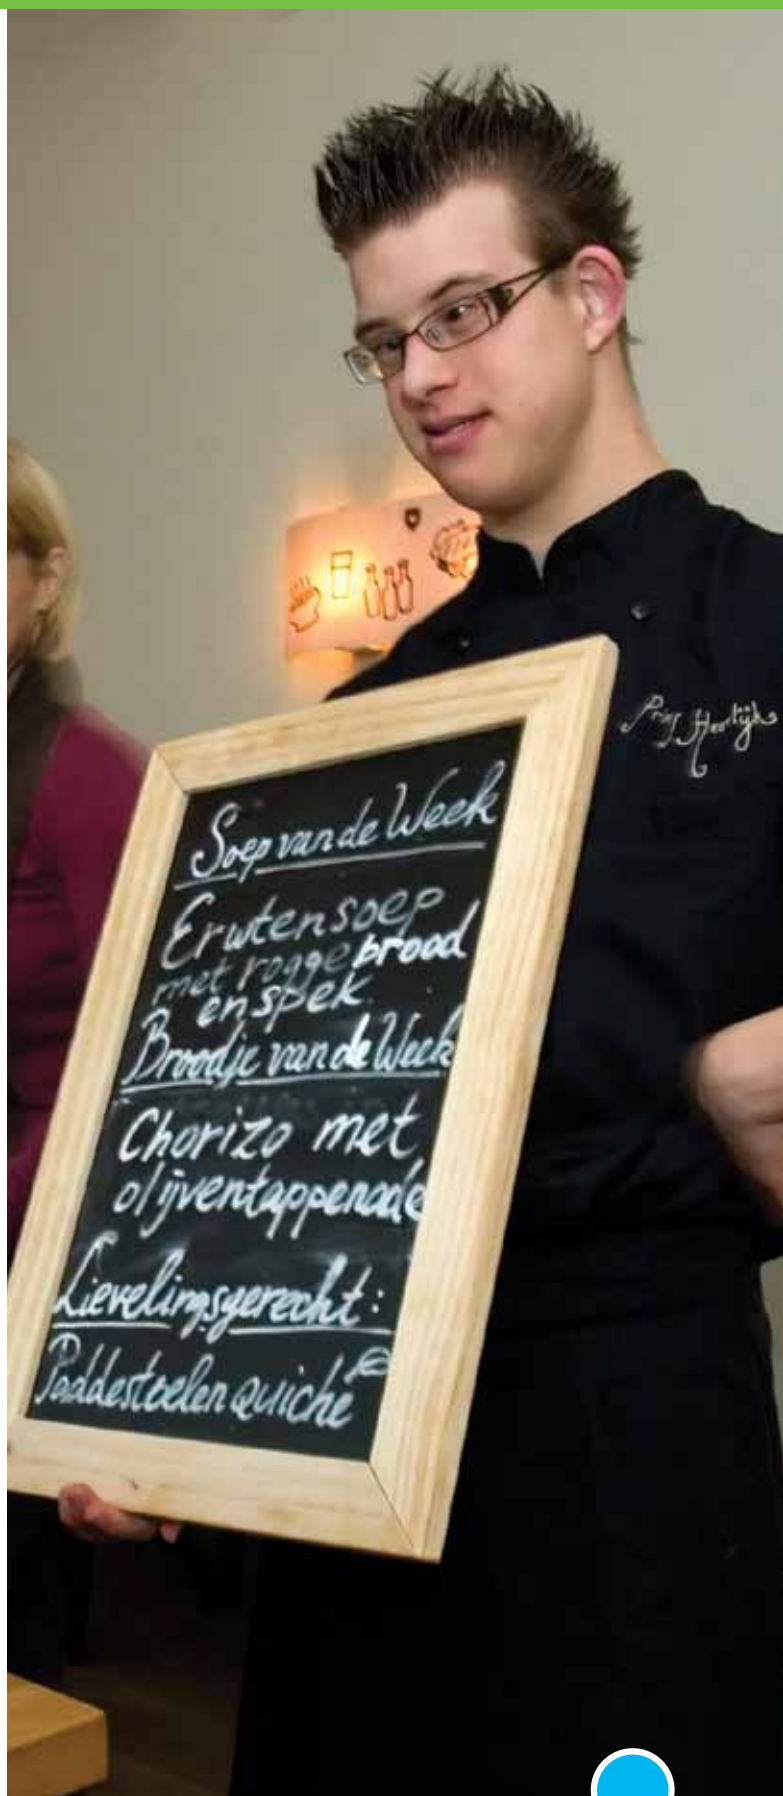 Soep van de Week
Erwtensoep
met roggebrood
en spek
Broodje van de Week
Chorizo met
olijventappenade
Lievelingsgerecht:
Paddestoelen quiche
Heerlijk